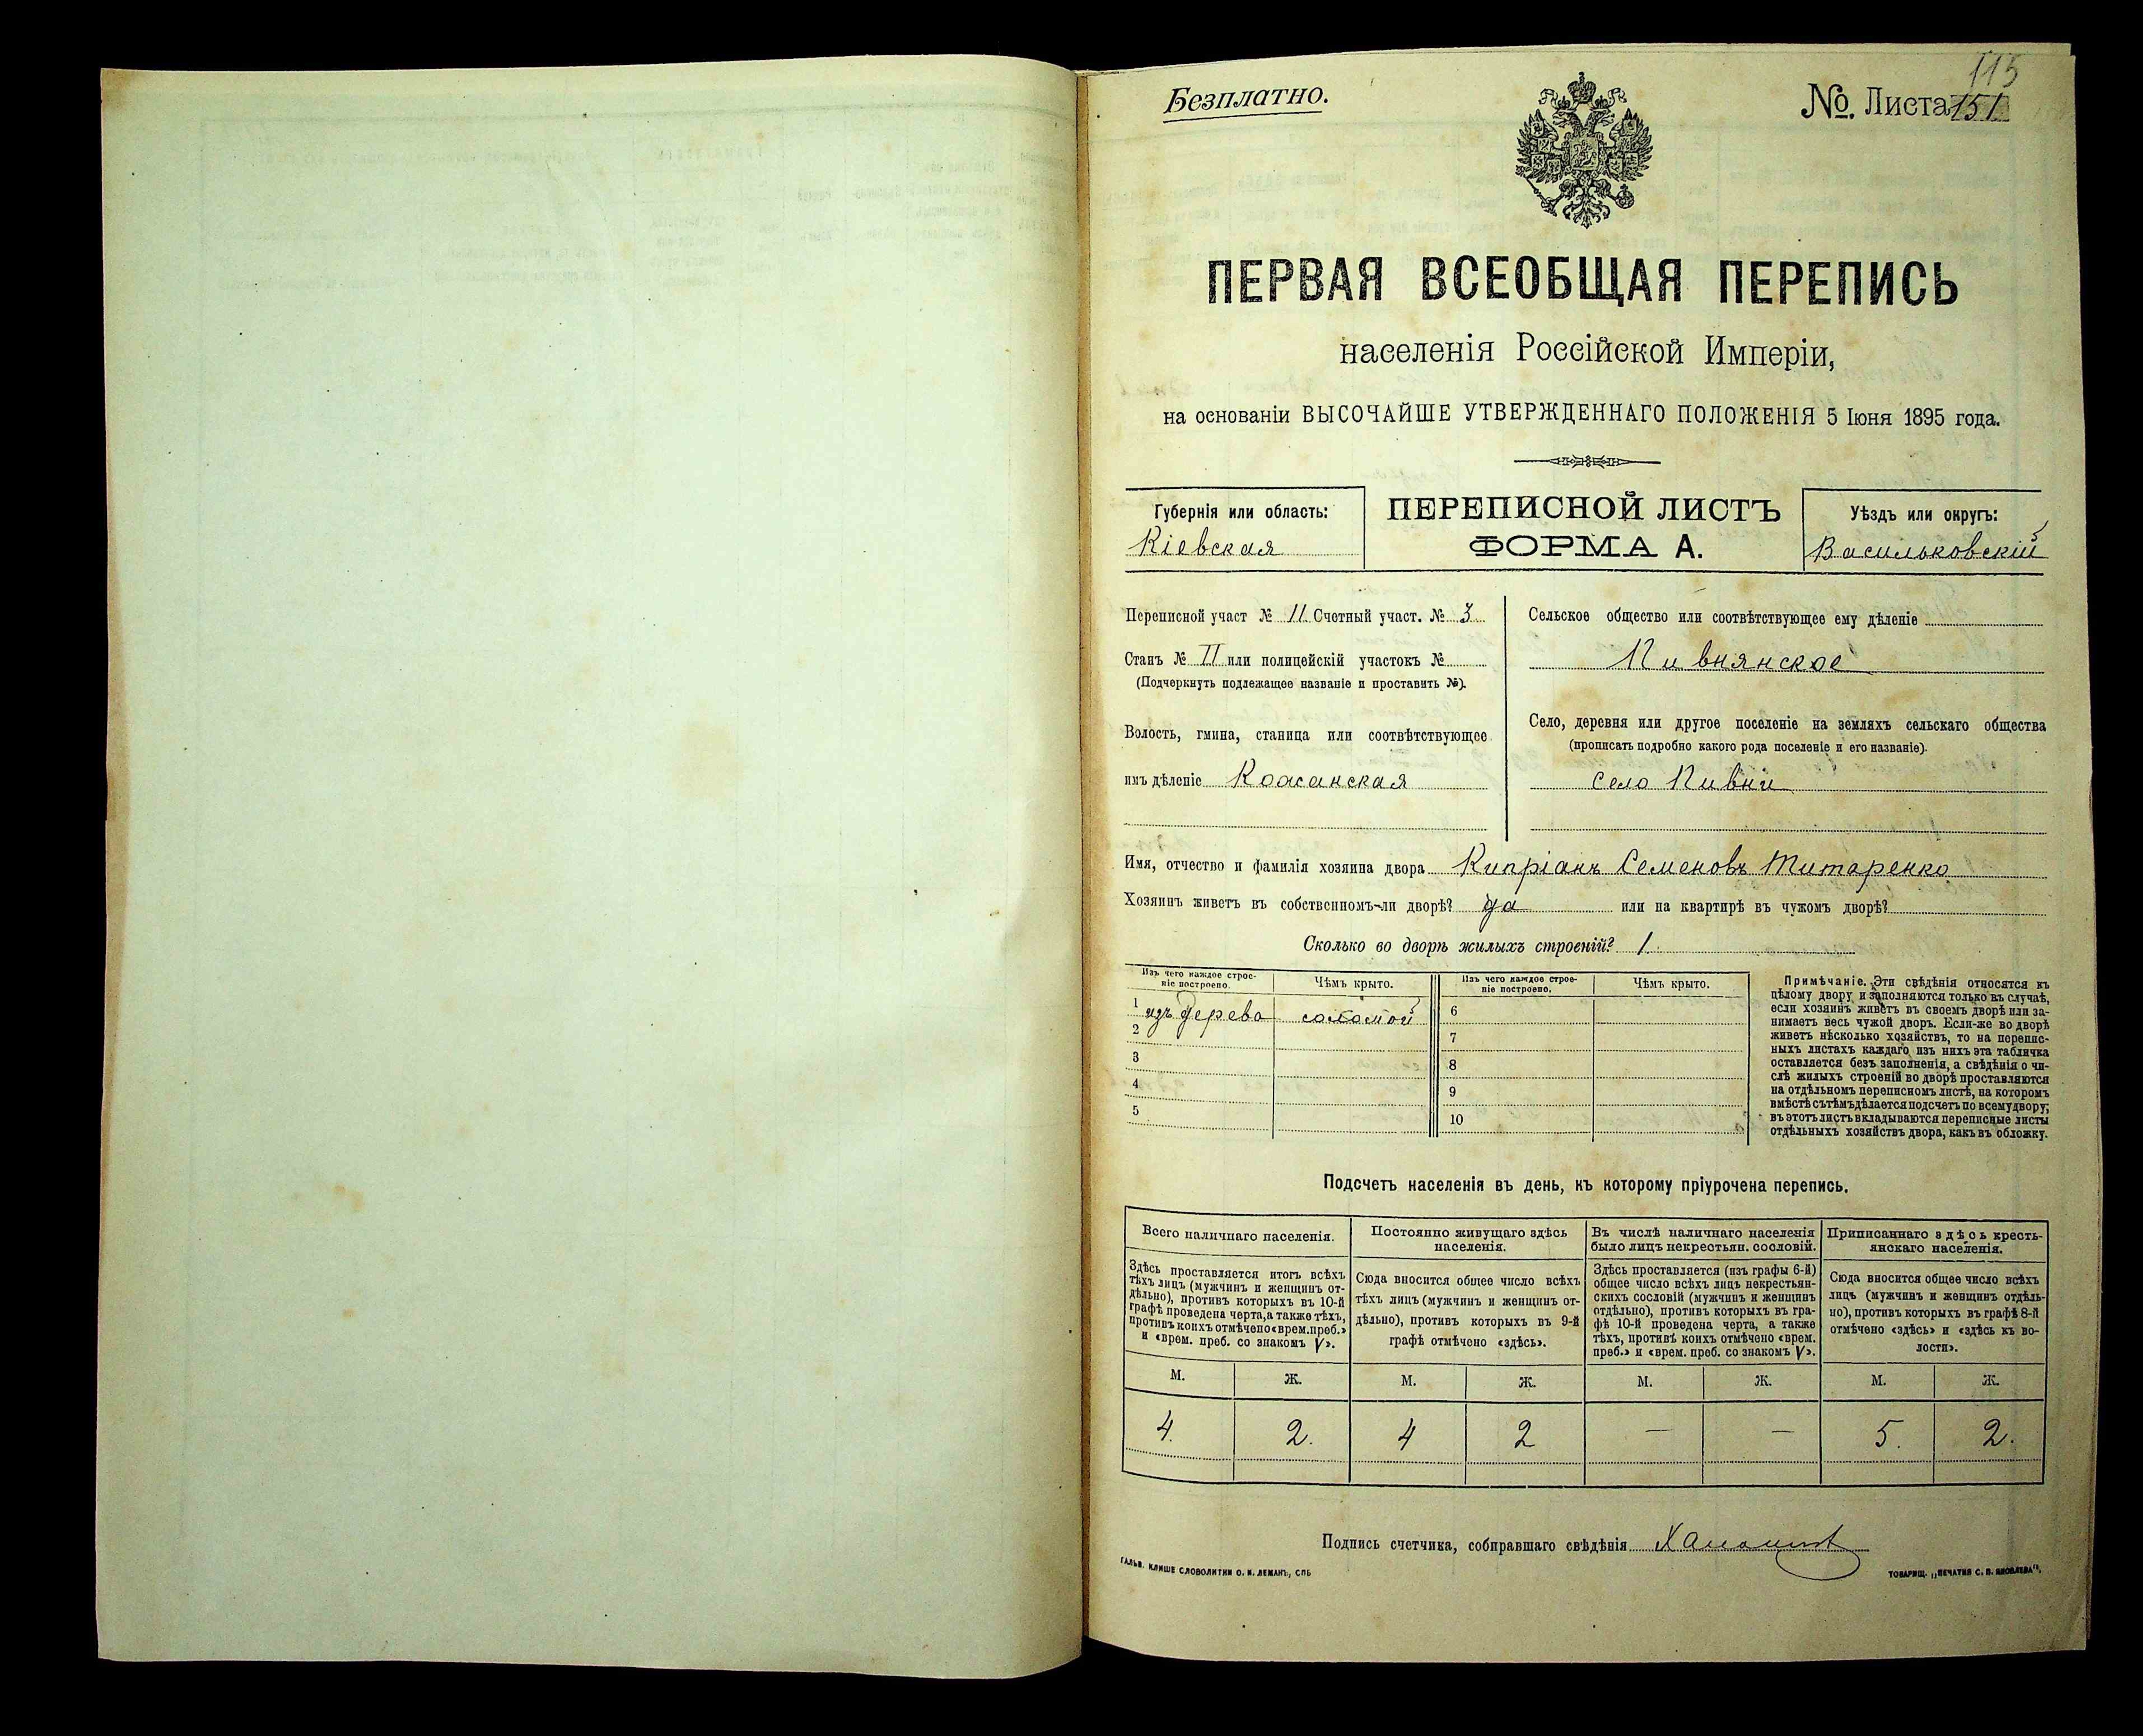 115
Безплатно.
№. Листа 151
ПЕРВАЯ ВСЕОБЩАЯ ПЕРЕПИСЬ
населенія Россійской Имперіи,
на основаніи ВЫСОЧАЙШЕ УТВЕРЖДЕННАГО ПОЛОЖЕНІЯ 5 Іюня 1895 года.
Губернія или область:
Кіевская
ПЕРЕПИСНОЙ ЛИСТЪ
ФОРМА А.
Уѣздъ или округъ:
Васильковскій
Переписной участ № 11 Счетный участ. № 3
Станъ № II или полицейскій участокъ №
(Подчеркнуть подлежащее названіе и проставить №).
Волость, гмина, станица или соотвѣтствующее
имъ дѣленіе Кожанская
Сельское общество или соотвѣтствующее ему дѣленіе
Пивнянское
Село, деревня или другое поселеніе на земляхъ сельскаго общества
(прописать подробно какого рода поселеніе и его названіе).
село Пивни
Имя, отчество и фамилія хозяина двора Кипріанъ Семеновъ Титаренко
Хозяинъ живетъ въ собственномъ-ли дворѣ? да или на квартирѣ въ чужомъ дворѣ?
Сколько во дворѣ жилыхъ строеній? 1
Изъ чего каждое строе-
ніе построено.
Чѣмъ крыто.
1 изъ дерева соломой
2
3
4
5
Изъ чего каждое строе-
ніе построено.
Чѣмъ крыто.
6
7
8
9
10
Примѣчаніе. Эти свѣдѣнія относятся къ
цѣлому двору и заполняются только въ случаѣ,
если хозяинъ живетъ въ своемъ дворѣ или за-
нимаетъ весь чужой дворъ. Если-же во дворѣ
живетъ нѣсколько хозяйствъ, то на перепис-
ныхъ листахъ каждаго изъ нихъ эта табличка
оставляется безъ заполненія, а свѣдѣнія о чи-
слѣ жилыхъ строеній во дворѣ проставляются
на отдѣльномъ переписномъ листѣ, на которомъ
вмѣстѣ съ тѣмъ дѣлается подсчетъ по всему двору;
въ этотъ листъ вкладываются переписные листы
отдѣльныхъ хозяйствъ двора, какъ въ обложку.
Подсчетъ населенія въ день, къ которому пріурочена перепись.
Всего наличнаго населенія.
Здѣсь проставляется итогъ всѣхъ
тѣхъ лицъ (мужчинъ и женщинъ от-
дѣльно), противъ которыхъ въ 10-й
графѣ проведена черта, а также тѣхъ,
противъ коихъ отмѣчено «врем. преб.»
и «врем. преб. со знакомъ V».
Постоянно живущаго здѣсь
населенія.
Сюда вносится общее число всѣхъ
тѣхъ лицъ (мужчинъ и женщинъ от-
дѣльно), противъ которыхъ въ 9-й
графѣ отмѣчено «здѣсь».
Въ числѣ наличнаго населенія
было лицъ некрестьян. сословій.
Здѣсь проставляется (изъ графы 6-й)
общее число всѣхъ лицъ некрестьян-
скихъ сословій (мужчинъ и женщинъ
отдѣльно), противъ которыхъ въ гра-
фѣ 10-й проведена черта, а также
тѣхъ, противъ коихъ отмѣчено «врем.
преб.» и «врем. преб. со знакомъ V».
Приписаннаго здѣсь кресть-
янскаго населенія.
Сюда вносится общее число всѣхъ
лицъ (мужчинъ и женщинъ отдѣль-
но), противъ которыхъ въ графѣ 8-й
отмѣчено «здѣсь» и «здѣсь къ во-
лости».
М. Ж. М. Ж. М. Ж. М. Ж.
4. 2. 4 2 — — 5. 2.
Подпись счетчика, собиравшаго свѣдѣнія
ГАЛЬВ. КЛИШЕ СЛОВОЛИТНИ О. И. ЛЕМАНЪ, СПБ
ТОВАРИЩ. „ПЕЧАТНЯ С. П. ЯКОВЛЕВА“,